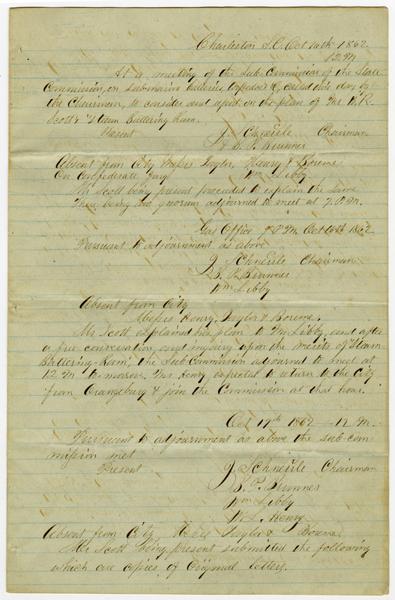 Charleston S.C. Oct 16th 1862
12 M
At a meeting of the sub-Commission of the State
Commission, on submarine batteries, torpedoes &c, called this day by
the Chairman, to consider and report on the plan of Mr
Scott's Steam Battering Ram.
Present J. Schnierle Chairman
Absent from City Messrs Taylor, Henry & Bowen
On Confederate Jury Wm Libby
Mr Scott being present proceeded to explain the same
There being no quorum adjourned to meet at 7 P.M.
Gas Office 7 P.M. Oct 16th 1862
Pursuant to adjournment as above
J. Schnierle Chairman
Wm Libby
Absent from City
Messrs Henry, Taylor & Bowen
Mr Scott explained his plan to Mr Libby, and after
a free conversation, and inquiry upon the merits of "Steam
Battering Ram," the Sub Commission adjourned to meet at
12 M to morrow. Mr Henry expected to return to the City
from Orangeburg & join the Commission at that hour.
Oct 17th 1862 12 M.
Pursuant to adjournment as above the sub-com-
mission met
Present J. Schnierle Chairman
Wm Libby
Henry
Absent from City Taylor & Bowen
Mr Scott being present submitted the following
which are copies of original letters.